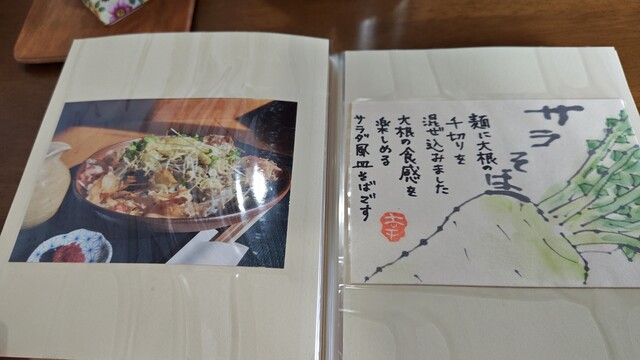 サラそば
麺に大根の
千切りを
混ぜ込みました
大根の食感を
楽しめる
サラダ風皿そばです